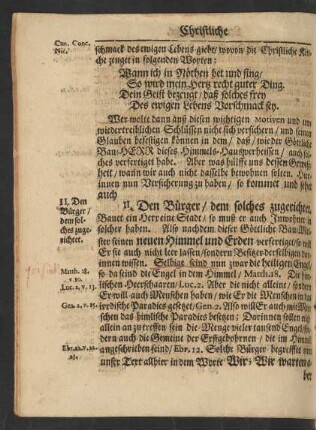 Christliche
Can. Conc.
Nic.
schmack des ewigen Lebens giebt/ wovon die Christliche Kir-
che zeuget in folgenden Worten:
Wann ich in Nöthen bet und sing/
So wird mein Hertz recht guter Ding.
Dein Geist bezeugt/ daß solches frey
Des ewigen Lebens Vorschmack sey.
Wer wolte dann auß diesen wichtigen Motiven und un-
wiedertreiblichen Schlüssen nicht sich versichern/ und seinen
Glauben befestigen können in dem/ daß/ wie der Göttliche
Bau-HERR dieses Himmels-Hauß verheissen/ auch sol-
ches verfertiget habe. Aber was hülffe uns dessen Gewiß-
heit/ wann wir auch nicht dasselbe bewohnen solten.
nun Versicherung zu haben/ so kommet und sehet
auch
II. Den
Bürger/
dem sol-
ches zuge-
richtet.
II. Den Bürger/ dem solches zugerichtet.
Bauet ein Herr eine Stadt/ so muß er auch Inwohner in
solcher haben. Also nachdem dieser Göttliche Bau-Mei-
ster seinen neuen Himmel und Erden verfertiget/ so will
Er sie auch nicht leer lassen/ sondern Besitzer derselbigen dar-
innen wissen. Selbige sind nun zwar die heiligen Engel/
Matth. 18.
v. 10.
Luc. 2. v. 13.
so da sind die Engel in dem Himmel/ Matth. 18. Die him-
lischen Heerschaaren/ Luc. 2. Aber die nicht alleine/ sondern
Er will auch Menschen haben/ wie Er die Menschen in das
Gen. 2. v. 15.
irrdische Paradies gesetzet/ Gen. 2. Also will Er auch mit Men-
schen das himlische Paradies besetzen: Dorinnen sollen nicht
allein anzutreffen sein die Menge vieler tausend Engel/ son-
dern auch die Gemeine der Erstgebohrnen/ die im Himmel
Ebr. 12. v. 22.
23.
angeschrieben seind/ Ebr. 12. Solche Bürger begreiffet uns
unser Text allhier in dem Worte Wir: Wir warten a-
ber